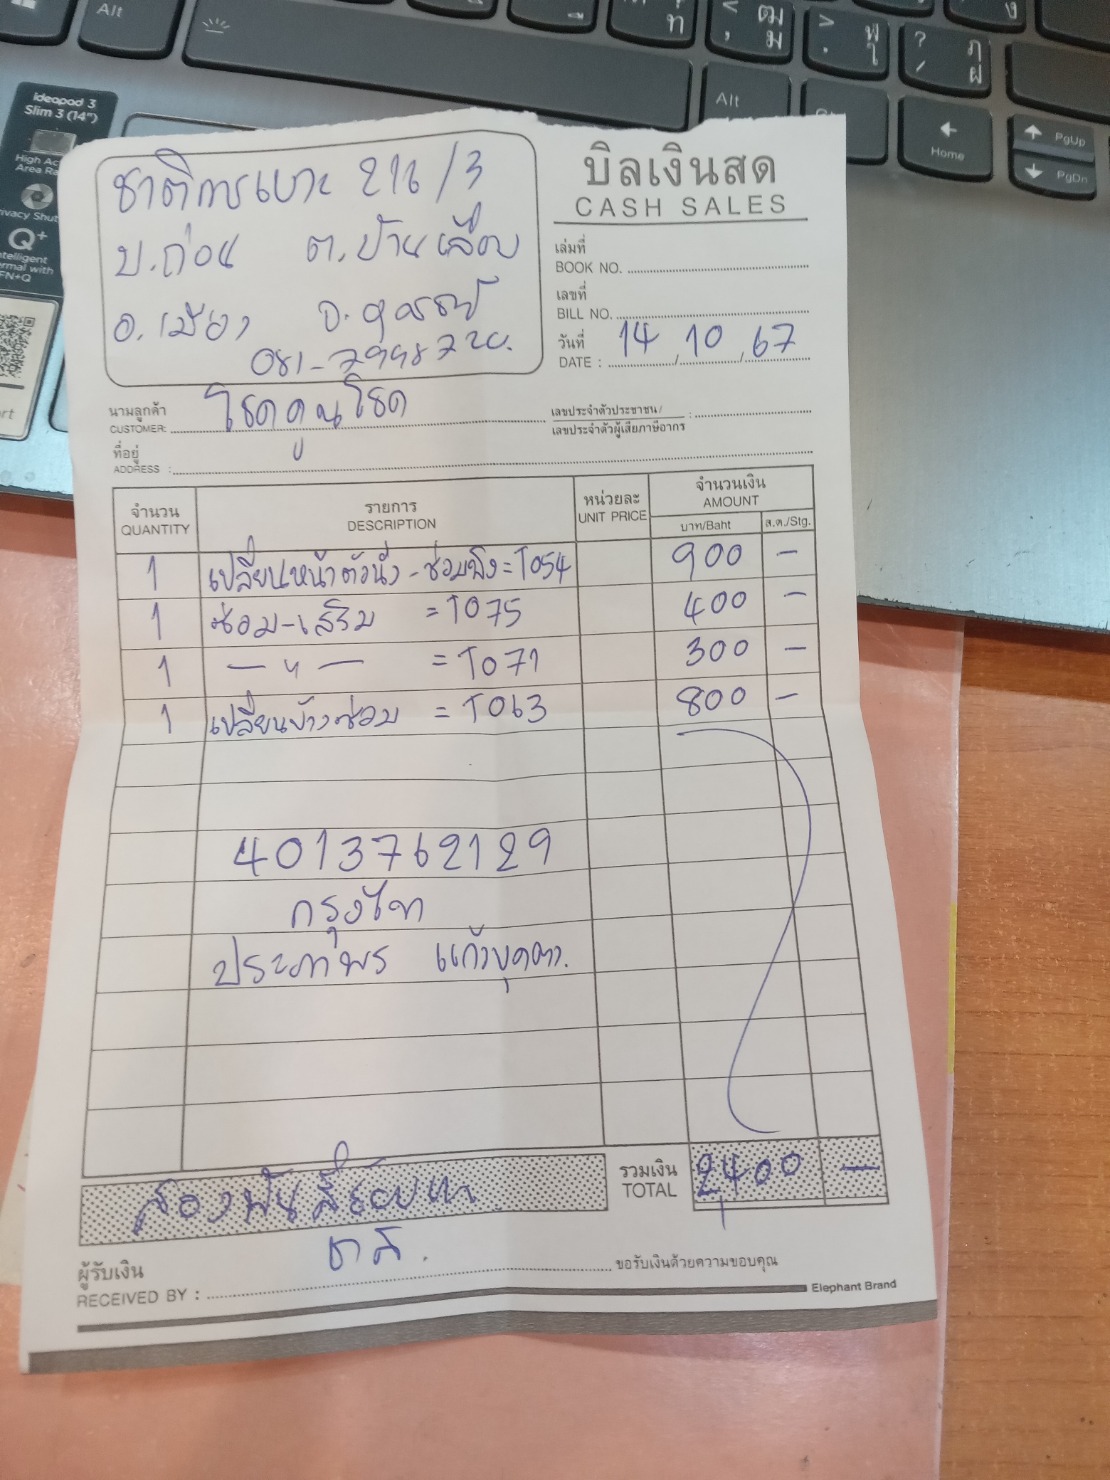 Alt
Alt
Home
PgUp
PgDn
ideapad 3
Slim 3 (14")
บิลเงินสด
CASH SALES
ชาติการเบาะ 216/3
บ.ถ่อน ต.บ้านเลื่อม
อ.เมือง จ.อุดรธานี
081-7998720.
เล่มที่
BOOK NO.
เลขที่
BILL NO.
วันที่
DATE : 14/10/67
นามลูกค้า
CUSTOMER: โชคคูนโชค
เลขประจำตัวประชาชน/
เลขประจำตัวผู้เสียภาษีอากร :
ที่อยู่
ADDRESS :
จำนวน QUANTITY รายการ DESCRIPTION หน่วยละ UNIT PRICE จำนวนเงิน AMOUNT
บาท/Baht ส.ต./Stg.
1 เปลี่ยนหน้าตัวนั่ง - ซ่อมพิง = T054 900 -
1 ซ่อม-เสริม = T075 400 -
1 — " — = T071 300 -
1 เปลี่ยนบ้างซ่อม = T063 800 -
4013762129
กรุงไทย
ประภาพร แก้วบุดตา.
สองพันสี่ร้อยบาท
รวมเงิน
TOTAL 2400 -
ชาติ.
ผู้รับเงิน
RECEIVED BY :
ขอรับเงินด้วยความขอบคุณ
Elephant Brand